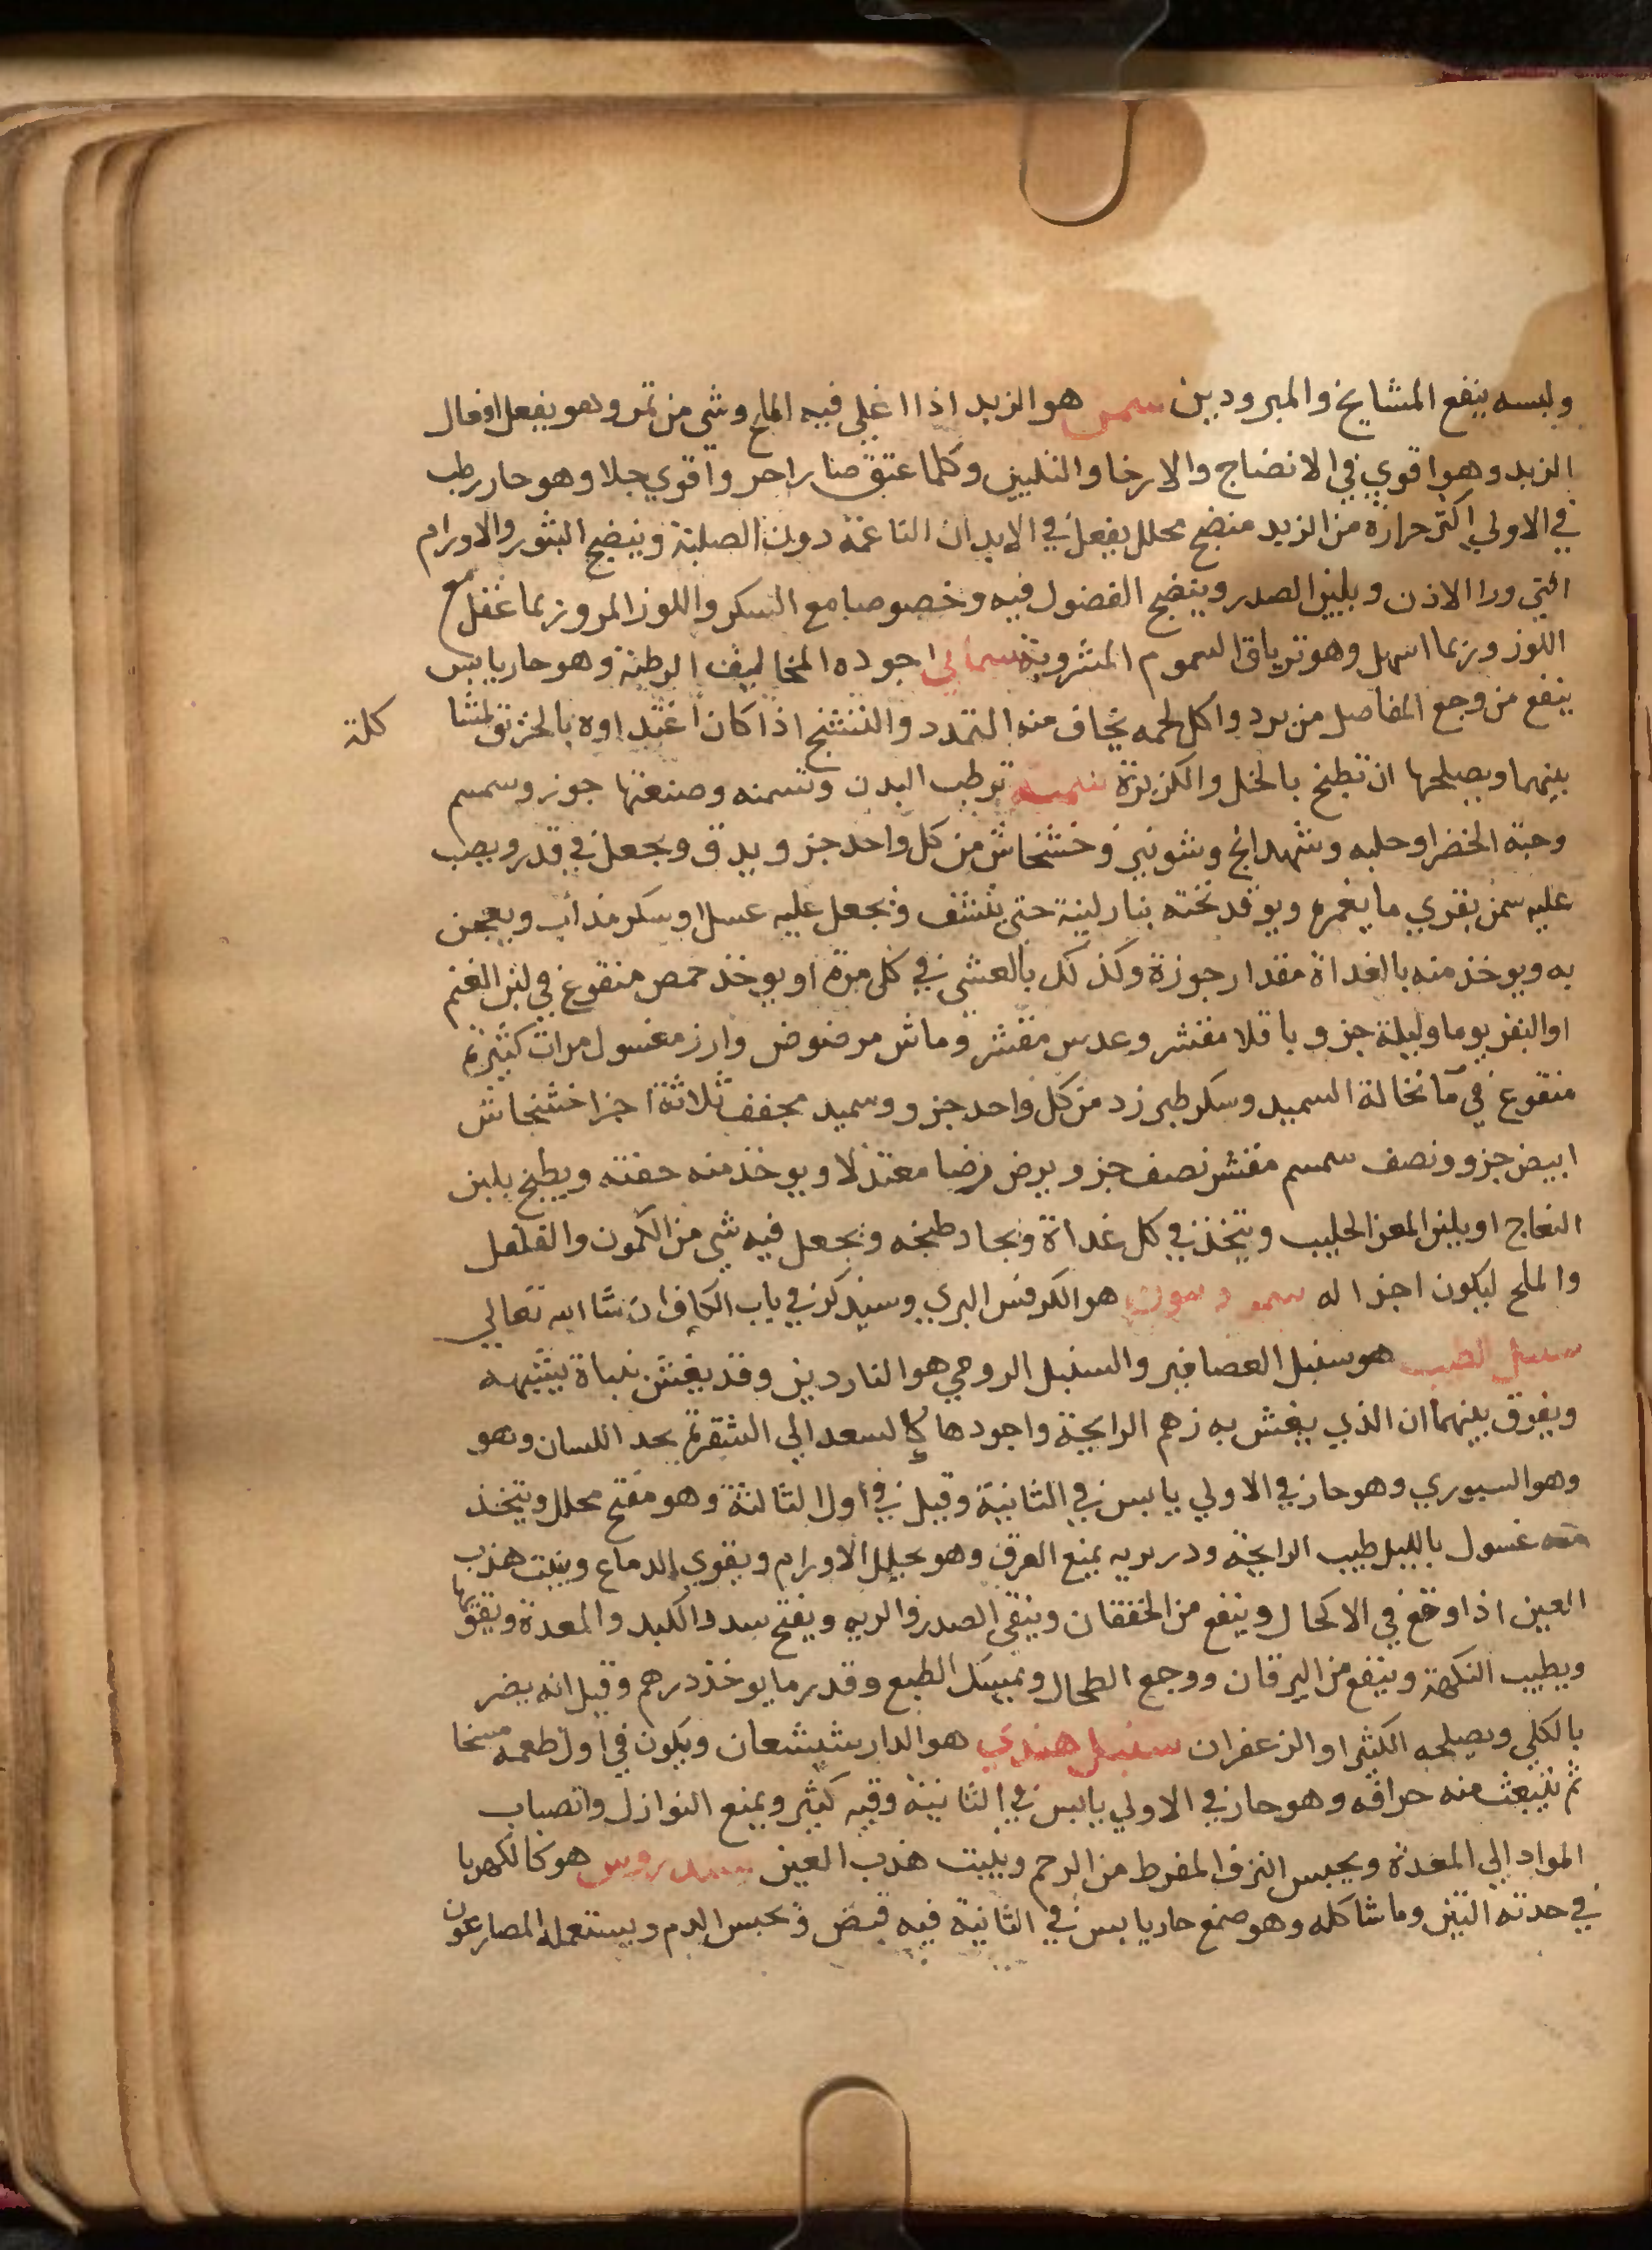 ولبسه ينفع المشايخ والمبرودين سمن هو الزبد اذا اغلي فيه الملح وشي من تمر وهو يفعل افعال
الزبد وهو اقوي في الانضاج والارخا والتليين وكلما عتق صار احر واقوي جلا وهو حار رطب
في الاولي اكثر حرارة من الزبد منضج محلل يفعل في الابدان الناعمة دون الصلبة وينضج البثور والاورام
التي ورا الاذن ويلين الصدر وينضج الفضول فيه وخصوصا مع السكر واللوز المر وربما عقل مع
اللوز وربما اسهل وهو ترياق السموم المشروبة سماني اجوده المخاليف الرطبة وهو حار يابس
ينفع من وجع المفاصل من برد واكل لحمه يخاف منه التمدد والتشنج اذا كان اغتداوه بالخربق لمشا كلة
بينهما ويصلحها ان تطبخ بالخل والكزبرة سمنه ترطب البدن وتسمنه وصنعتها جوز وسمسم
وحبة الخضرا وحلبه وشهدانج وشونيز وخشخاش من كل واحد جزو يدق ويجعل في قدر ويصب
عليه سمن بقري ما يغمره ويوقد تحته بنار لينة حتي ينشف ويجعل عليه عسل او سكر مذاب ويعجن
به ويوخذ منه بالغداة مقدار جوزة وكذلك بالعشي في كل مرة او يوخذ حمص منقوع في لبن الغنم
او البقر يوما وليلة جزو باقلا مقشر وعدس مقشر وماش مرضوض وارز مغسول مرات كثيرة
منقوع في ما نخالة السميد وسكر طبرزد من كل واحد جزو وسميد مجفف ثلاثة اجزا خشخاش
ابيض جزو ونصف سمسم مقشر نصف جزو يرض رضا معتدلا ويوخذ منه حفنه ويطبخ بلبن
النعاج او بلبن المعز الحليب ويتخذ في كل غداة ويجاد طبخه ويجعل فيه شي من الكمون والفلفل
والملح ليكون اجزا له هو الكرفس البري وسيذكر في باب الكاف ان شا الله تعالي
سنبل الطيب هو سنبل العصافير والسنبل الرومي هو الناردين وقد يغش بنباة يشبهه
ويفرق بينهما ان الذي يغش به زهم الرايحة واجودها كالسعد الي الشقرة يحد اللسان وهو
وهو السوري وهو حار في الاولي يابس في الثانية وقيل في اول الثالثة وهو مفتح محلل ويتخذ
منه غسول بالليل طيب الرايحة ودريرته يمنع العرق وهو يحلل الاورام ويقوي الدماغ وينبت هذب
العين اذا وقع في الاكحال وينفع من الخفقان وينقي الصدر والريه ويفتح سدد الكبد والمعدة ويقويها
ويطيب النكهة وينفع من اليرقان ووجع الطحال ويمسك الطبع وقدر ما يوخذ درهم وقيل انه يضر
بالكلي ويصلحه الكثيرا او الزعفران سنبل هندي هو الدار شيشعان ويكون في اول طعمه
ثم تنبعث منه حرافه وهو حار في الاولي يابس في الثانية وفيه كثير ويمنع النوازل وانصباب
المواد الي المعدة ويحبس النزف المفرط من الرحم وينبت هذب العين سندروس هو كالكهربا
في حدته التبن وما شاكله وهو صمغ حار يابس في الثانية فيه قبض ويحبس الدم ويستعمله المصارعون